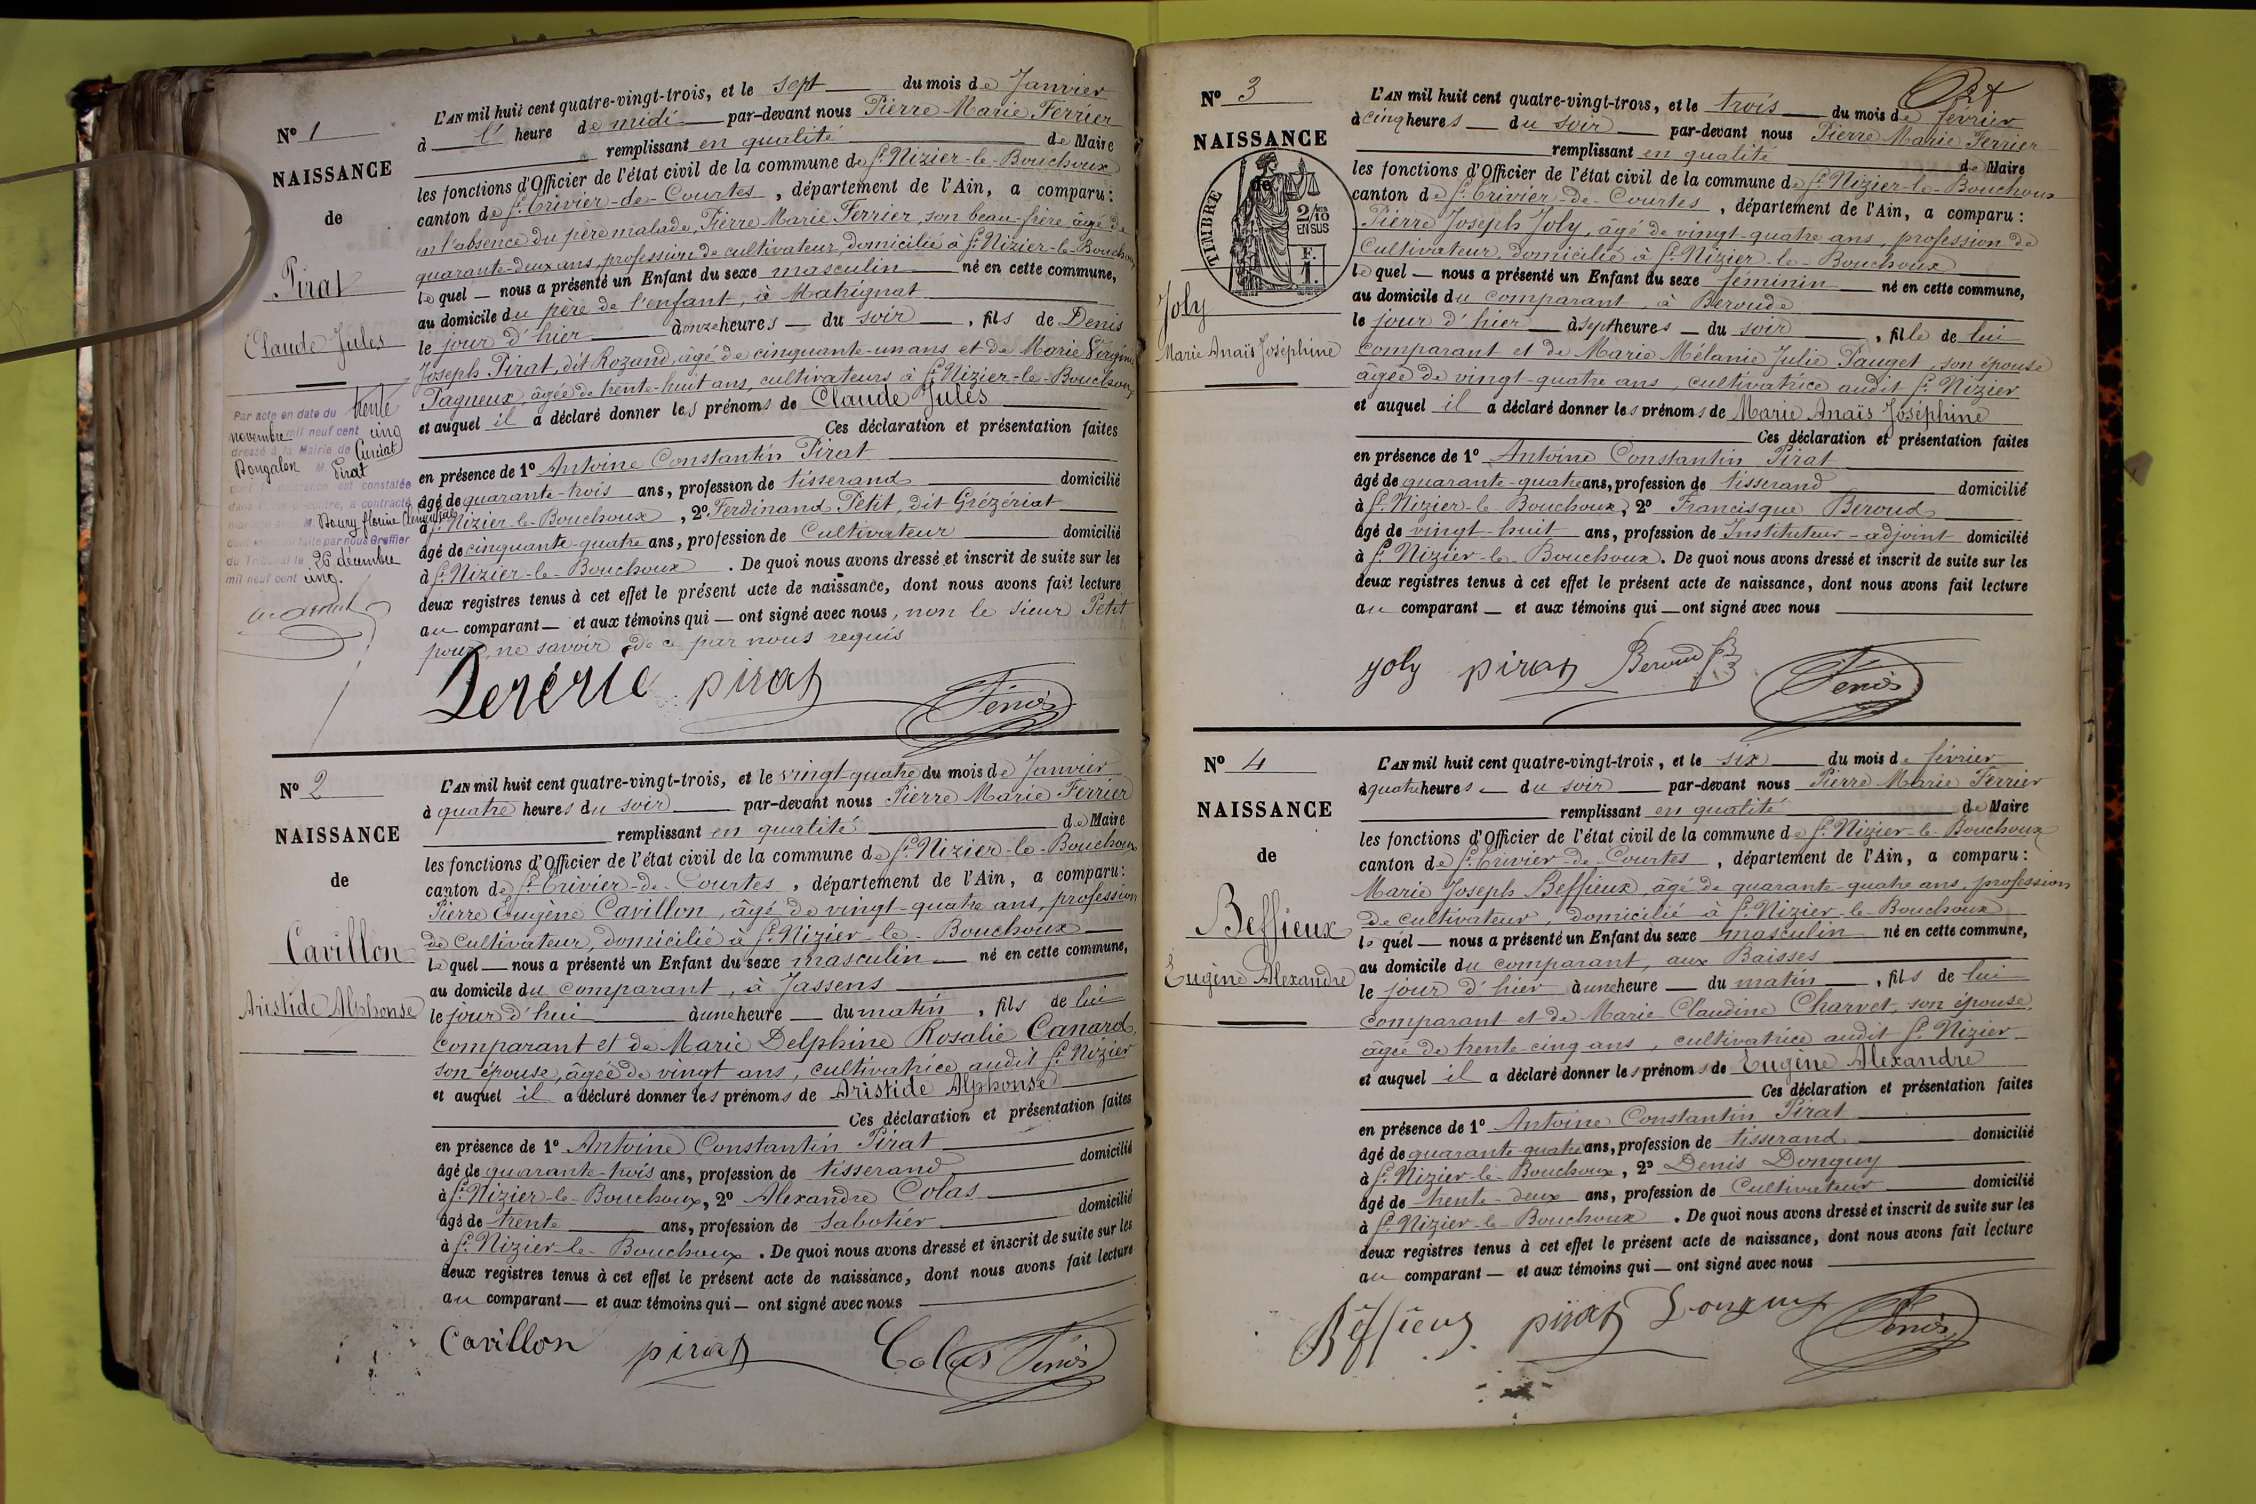 N° 1
NAISSANCE
de
Pirat
Claude Jules
Par acte en date du trente
novembre mil neuf cent cinq
dressé à la Mairie de Curciat
Dongalon M. Pirat
dont la naissance est constatée
dans l'acte ci-contre, a contracté
mariage avec M. florine
par nous Greffier
du Tribunal le 26 décembre
mil neuf cent cinq.
L'AN mil huit cent quatre-vingt-trois, et le sept du mois de Janvier
à l' heure de midi par-devant nous Pierre Marie Ferrier
remplissant en qualité de Maire
les fonctions d'Officier de l'état civil de la commune de St Nizier-le-Bouchoux
canton de St Trivier-de-Courtes, département de l'Ain, a comparu:
en l'absence du père malade, Pierre Marie Ferrier, son beau-frère, âgé de
quarante-deux ans, profession de cultivateur, domicilié à St Nizier-le-Bouchoux
lequel — nous a présenté un Enfant du sexe masculin né en cette commune,
au domicile du père de l'enfant, à Matrignat
le jour d'hier à onze heures — du soir, fils de Denis
Joseph Pirat, dit Rozand, âgé de cinquante-un ans et de Marie Virginie
Pagneux, âgée de trente-huit ans, cultivateurs à St Nizier-le-Bouchoux
et auquel il a déclaré donner les prénoms de Claude Jules
Ces déclaration et présentation faites
en présence de 1° Antoine Constantin Pirat
âgé de quarante-trois ans, profession de tisserand domicilié
à St Nizier-le-Bouchoux, 2° Ferdinand Petit, dit Grézériat
âgé de cinquante-quatre ans, profession de Cultivateur domicilié
à St Nizier-le-Bouchoux. De quoi nous avons dressé et inscrit de suite sur les
deux registres tenus à cet effet le présent acte de naissance, dont nous avons fait lecture
au comparant — et aux témoins qui — ont signé avec nous, non le sieur Petit
pour ne savoir de ce par nous requis
pirat
N° 2
NAISSANCE
de
Cavillon
Aristide Alphonse
L'AN mil huit cent quatre-vingt-trois, et le vingt-quatre du mois de Janvier
à quatre heures du soir par-devant nous Pierre Marie Ferrier
remplissant en qualité de Maire
les fonctions d'Officier de l'état civil de la commune de St Nizier-le-Bouchoux
canton de St Trivier-de-Courtes, département de l'Ain, a comparu:
Pierre Eugène Cavillon, âgé de vingt-quatre ans, profession
de cultivateur, domicilié à St Nizier-le-Bouchoux
lequel — nous a présenté un Enfant du sexe masculin — né en cette commune,
au domicile du comparant, à Jassens
le jour d'hui à une heure — du matin, fils de lui
comparant et de Marie Delphine Rosalie Canard,
son épouse, âgée de vingt ans, cultivatrice audit St Nizier
et auquel il a déclaré donner les prénoms de Aristide Alphonse
Ces déclaration et présentation faites
en présence de 1° Antoine Constantin Pirat
âgé de quarante-trois ans, profession de tisserand domicilié
à St Nizier-le-Bouchoux, 2° Alexandre Colas
âgé de trente ans, profession de sabotier domicilié
à St Nizier-le-Bouchoux. De quoi nous avons dressé et inscrit de suite sur les
deux registres tenus à cet effet le présent acte de naissance, dont nous avons fait lecture
au comparant — et aux témoins qui — ont signé avec nous
Cavillon pirat Colas
N° 3
NAISSANCE
de
TIMBRE
2/10
EN SUS
F.
1.
Joly
Marie Anaïs Joséphine
L'AN mil huit cent quatre-vingt-trois, et le trois du mois de février
à cinq heures — du soir par-devant nous Pierre Marie Ferrier
remplissant en qualité de Maire
les fonctions d'Officier de l'état civil de la commune de St Nizier-le-Bouchoux
canton de St Trivier-de-Courtes, département de l'Ain, a comparu:
Pierre Joseph Joly, âgé de vingt-quatre ans, profession de
Cultivateur, domicilié à St Nizier-le-Bouchoux
lequel — nous a présenté un Enfant du sexe féminin né en cette commune,
au domicile du comparant, à Beroude
le jour d'hier à sept heures — du soir, fille de lui
comparant et de Marie Mélanie Julie Pauget, son épouse
âgée de vingt-quatre ans, cultivatrice audit St Nizier
et auquel il a déclaré donner les prénoms de Marie Anaïs Joséphine
Ces déclaration et présentation faites
en présence de 1° Antoine Constantin Pirat
âgé de quarante-quatre ans, profession de tisserand domicilié
à St Nizier-le-Bouchoux, 2° Francisque Beroud
âgé de vingt-huit ans, profession de Instituteur-adjoint domicilié
à St Nizier-le-Bouchoux. De quoi nous avons dressé et inscrit de suite sur les
deux registres tenus à cet effet le présent acte de naissance, dont nous avons fait lecture
au comparant — et aux témoins qui — ont signé avec nous
joly pirat Beroud
N° 4
NAISSANCE
de
Beffieux
Eugène Alexandre
L'AN mil huit cent quatre-vingt-trois, et le six du mois de février
à quatre heures — du soir par-devant nous Pierre Marie Ferrier
remplissant en qualité de Maire
les fonctions d'Officier de l'état civil de la commune de St Nizier-le-Bouchoux
canton de St Trivier-de-Courtes, département de l'Ain, a comparu:
Marie Joseph Beffieux, âgé de quarante-quatre ans, profession
de cultivateur, domicilié à St Nizier-le-Bouchoux
lequel — nous a présenté un Enfant du sexe masculin né en cette commune,
au domicile du comparant, aux Baisses
le jour d'hier à une heure — du matin, fils de lui
comparant et de Marie Claudine Charvet, son épouse,
âgée de trente-cinq ans, cultivatrice audit St Nizier
et auquel il a déclaré donner les prénoms de Eugène Alexandre
Ces déclaration et présentation faites
en présence de 1° Antoine Constantin Pirat
âgé de quarante-quatre ans, profession de tisserand domicilié
à St Nizier-le-Bouchoux, 2° Denis Donguy
âgé de trente-deux ans, profession de Cultivateur domicilié
à St Nizier-le-Bouchoux. De quoi nous avons dressé et inscrit de suite sur les
deux registres tenus à cet effet le présent acte de naissance, dont nous avons fait lecture
au comparant — et aux témoins qui — ont signé avec nous
Béffieux pirat Donguy